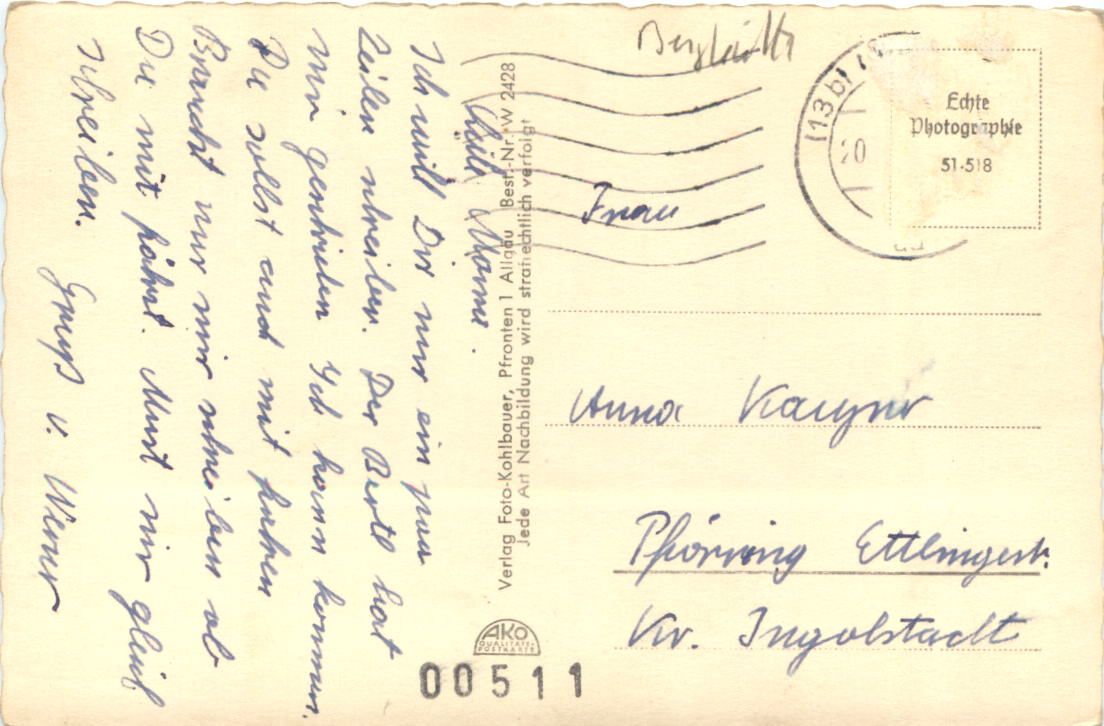 Liebe Mama.
Ich will Dir nur ein paar
Zeilen schreiben. Der Bertl hat
mir geschrieben Ich kann kommen.
Du sollst auch mit fahren
Brauchst nur mir schreiben ob
Du mit fährst. Must mir gleich
schreiben.
Gruß v. Werner
Verlag Foto-Kohlbauer, Pfronten 1 Allgäu Best.-Nr. W 2428
Jede Art Nachbildung wird strafrechtlich verfolgt
AKO
QUALITÄTS-
POSTKARTE
00511
(13b)
20
Echte
Photographie
51·518
Frau
Anna
Pförring Ettlingerstr.
Kr. Ingolstadt